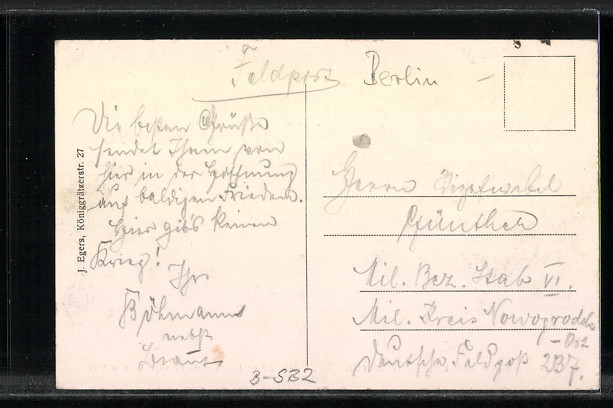 Feldpost
Berlin
Die besten Grüße
sendet Ihnen von
hier in der Hoffnung
auf baldigen Frieden.
Hier gibs keinen
Krieg!
Ihr
Böhmann
nebst
Braut
J. Egers, Königgrätzerstr. 27
Herrn Vizefwebel
Günther
Mil. Bez. Stab VI.
Mil. Kreis Nowogrodek
- Ost
Deutsche Feldpost 237.
B-SB2